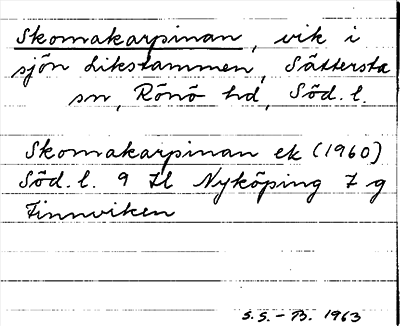 Skomakarpinan, vik i
sjön Likstammen, Sättersta
sn, Rönö hd, Söd. l.
Skomakarpinan ek (1960)
Söd. l. 9 Il Nyköping 7 g
Finnviken
S.S. - B. 1963